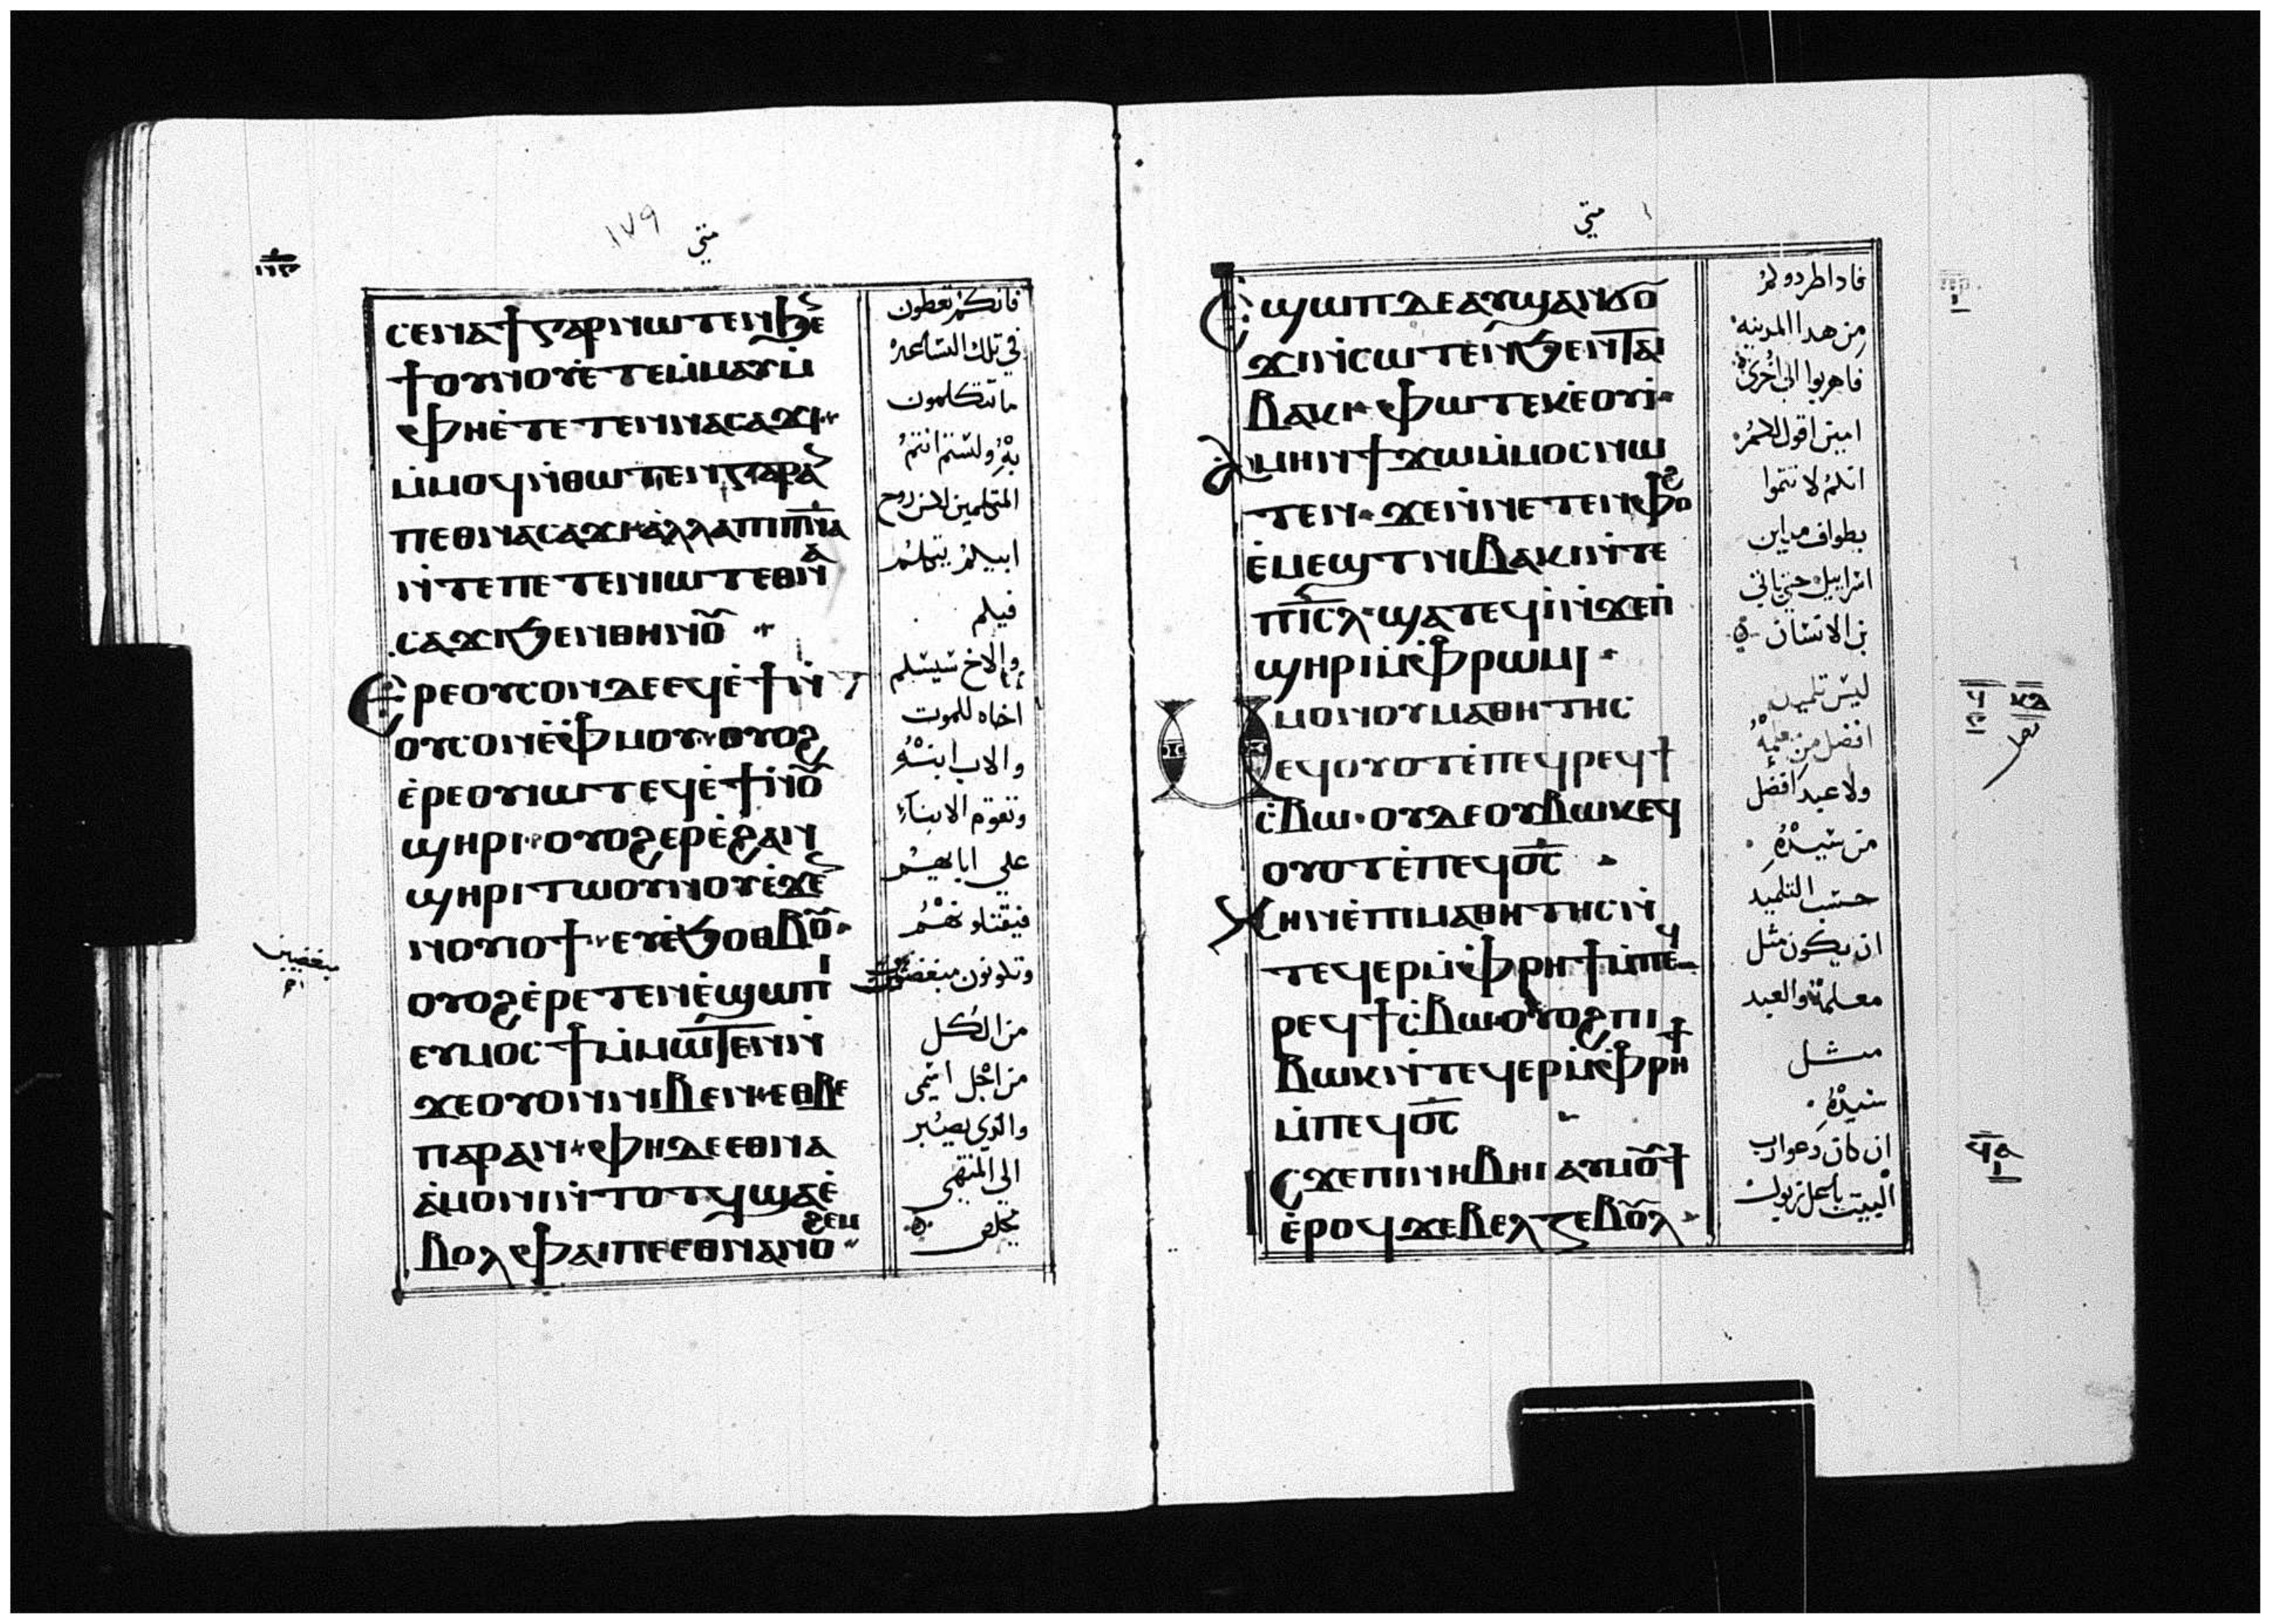 متي
١٧٩
ⲥⲉⲛⲁϯⲅⲁⲣⲛⲱⲧⲉⲛϧⲉ̀
ϯⲟⲩⲛⲟⲩⲉ̀ⲧⲉⲙ̀ⲙⲁⲩⲙ̀
ⲫⲏⲉ̀ⲧⲉⲧⲉⲛⲛⲁⲥⲁϫⲓ
ⲙ̀ⲙⲟϥⲛ̀ⲑⲱⲧⲉⲛⲅⲁⲣⲁ
ⲡⲉⲑⲛⲁⲥⲁϫⲓⲁⲗⲗⲁⲡⲓⲡ̅ⲛ̅ⲁ
ⲛ̀ⲧⲉⲡⲉⲧⲉⲛⲓⲱⲧⲉⲑⲛⲁ
ⲥⲁϫⲓϧⲉⲛⲑⲏⲛⲟ̅
Ⲉⲣⲉⲟⲩⲥⲟⲛⲇⲉⲉϥⲉ̀ϯⲛ̀
ⲟⲩⲥⲟⲛⲉ̀ⲫⲙⲟⲩ ⲟⲩⲟϩ
ⲉ̀ⲣⲉⲟⲩⲓⲱⲧⲉϥⲉ̀ϯⲛ̀ⲟ̅
ϣⲏⲣⲓ ⲟⲩⲟϩⲉⲣⲉ̀ϩⲁⲛ
ϣⲏⲣⲓⲧⲱⲟⲩⲛⲟⲩⲉ̀ϫⲉ
ⲛⲟⲩⲓⲟϯ ⲉⲩⲉ̀ϧⲟⲑⲃⲟ̅
ⲟⲩⲟϩⲉ̀ⲣⲉⲧⲉⲛⲉ̀ϣⲱⲡⲓ
ⲉⲩⲙⲟⲥϯⲙ̀ⲙⲱⲧⲉⲛⲛ̀
ϫⲉⲟⲩⲟⲛⲛⲓⲃⲉⲛ ⲉⲑⲃⲉ
ⲡⲁⲣⲁⲛ ⲫⲏⲇⲉⲉⲑⲛⲁ
ⲁ̀ⲙⲟⲛⲓⲛ̀ⲧⲟⲧϥϣⲁⲉ̀
ⲃⲟⲗⲫⲁⲓⲡⲉⲉⲑⲛⲁⲛⲟϩⲉⲙ
فانكم تعطون
في تلك الساعه
ما تتكلمون
به ولستم انتم
المتكلمين لاكن روح
ابيكم يتكلم
فيكم
والاخ سيسلم
اخاه للموت
والاب ابنه
وتقوم الابناء
علي اباهم
فيقتلونهم
وتكونون مبغضين
من الكل
من اجل اسمي
والذي يصبر
الي المنتهي
يخلص
متي
Ⲉϣⲱⲡⲇⲉⲁⲩϣⲁⲛϭⲟ
ϫⲓⲛ̀ⲥⲱⲧⲉⲛϧⲉⲛⲧⲁⲓ
ⲃⲁⲕⲓ ⲫⲱⲧⲉⲕⲉⲟⲩⲓ̀
Ⲁⲙⲏⲛϯϫⲱⲙ̀ⲙⲟⲥⲛⲱ
ⲧⲉⲛ ϫⲉⲛ̀ⲛⲉⲧⲉⲛⲫⲟϩ
ⲉ̀ⲙⲉϣⲧⲛⲓⲃⲁⲕⲓⲛ̀ⲧⲉ
ⲡⲓ̅ⲥ̅ⲗ̅ ϣⲁⲧⲉϥⲓ̀ⲛ̀ϫⲉⲡ̀
ϣⲏⲣⲓⲙ̀ⲫⲣⲱⲙⲓ
Ⲙⲙⲟⲛⲟⲩⲙⲁⲑⲏⲧⲏⲥ
ⲉϥⲟⲩⲟⲧⲉ̀ⲡⲉϥⲣⲉϥϯ
ⲥ̀ⲃⲱ ⲟⲩⲇⲉⲟⲩⲃⲱⲕⲉϥ
ⲟⲩⲟⲧⲉ̀ⲡⲉϥⲟ̅ⲥ̅
Ⲕⲏⲛⲉ̀ⲡⲓⲙⲁⲑⲏⲧⲏⲥⲛ̀
ⲧⲉϥⲉⲣⲙ̀ⲫⲣⲏϯⲙ̀ⲡⲉϥ
ⲣⲉϥϯⲥ̀ⲃⲱ ⲟⲩⲟϩⲡⲓ
ⲃⲱⲕⲛ̀ⲧⲉϥⲉⲣⲙ̀ⲫⲣⲏϯ
ⲙ̀ⲡⲉϥⲟ̅ⲥ̅
Ⲓⲥϫⲉⲡⲓⲛⲏⲃⲏⲓⲁⲩⲙⲟ̅ϯ
ⲉ̀ⲣⲟϥϫⲉⲃⲉⲗⲍⲉⲃⲟⲩⲗ
فاذا طردوكم
من هدا المدينه
فاهربوا الي اخري
امين اقول لكم
انكم لا تتموا
بطواف مداين
اسراييل حتي ياتي
بن الانسان
ليس تلميد
افضل من معلمه
ولا عبد افضل
من سيده
حسب التلميد
ان يكون مثل
معلمه والعبد
مثل
سيده
ان كان دعوا رب
البيت باعل زبول